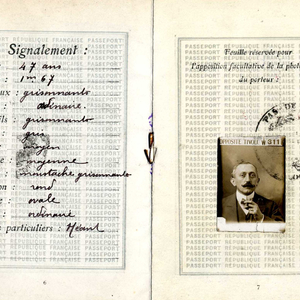 Signalement :
47 ans
: 1m 67
ux : grisonnants
ordinaire
ils : grisonnants
: gris
moyen
: moyenne
: moustache grisonnante
on : rond
: ovale
: ordinaire
particuliers : Néant
6
Feuille réservée pour
l'apposition facultative de la photo
du porteur :
7
PASSEPORT RÉPUBLIQUE FRANÇAISE PASSEPORT